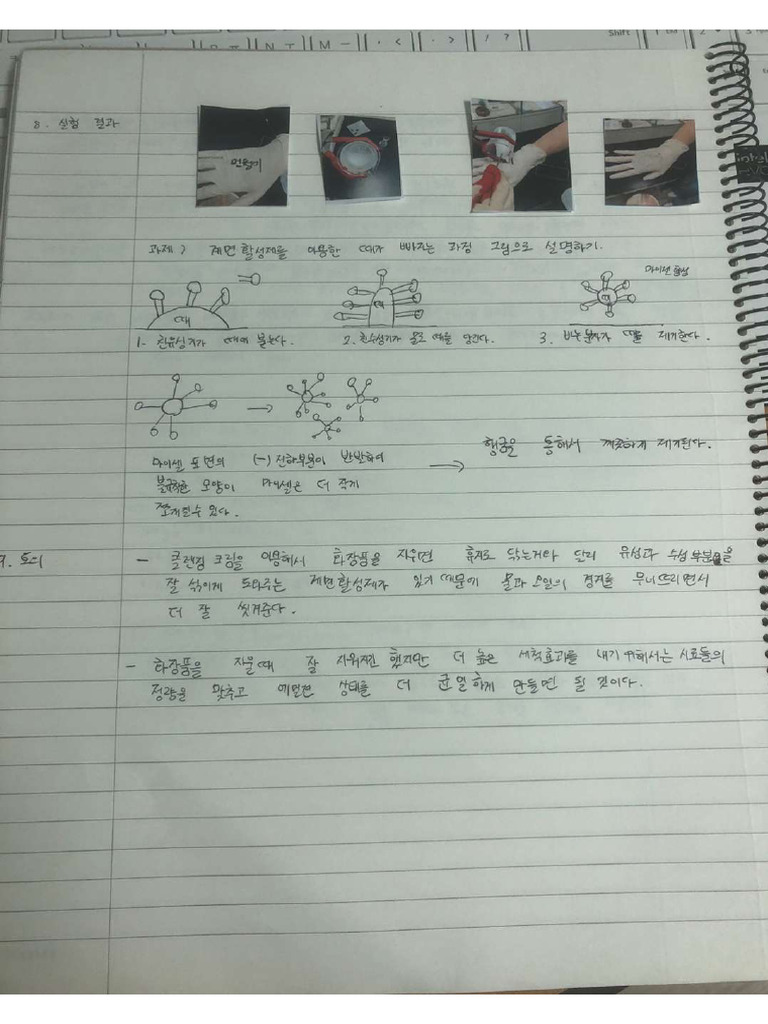 N T M
Shift
8. 실험 결과
과제? 계면활성제를 이용한 때가 빠지는 과정 그림으로 설명하기.
마이셀 형성
때
때
때
1. 친유성기가 때에 붙는다.
2. 친수성기가 물로 때를 당긴다.
3. 비누분자가 때를 제거한다.
마이셀 표면의 (-) 전하부분이 반발하여
불규칙한 모양이 마이셀은 더 작게
쪼개질수 있다.
헹굼을 통해서 깨끗하게 제거된다.
9. 토의
- 클렌징 크림을 이용해서 화장품을 지우면 휴지로 닦는거와 달리 유성과 수성 부분을
잘 섞이게 도와주는 계면활성제가 있기 때문에 물과 오일의 경계를 무너뜨리면서
더 잘 씻겨준다.
- 화장품을 지울때 잘 지워지긴 했지만 더 높은 세척효과를 내기 위해서는 시료들의
정량을 맞추고 에멀젼 상태를 더 균일하게 만들면 될 것이다.